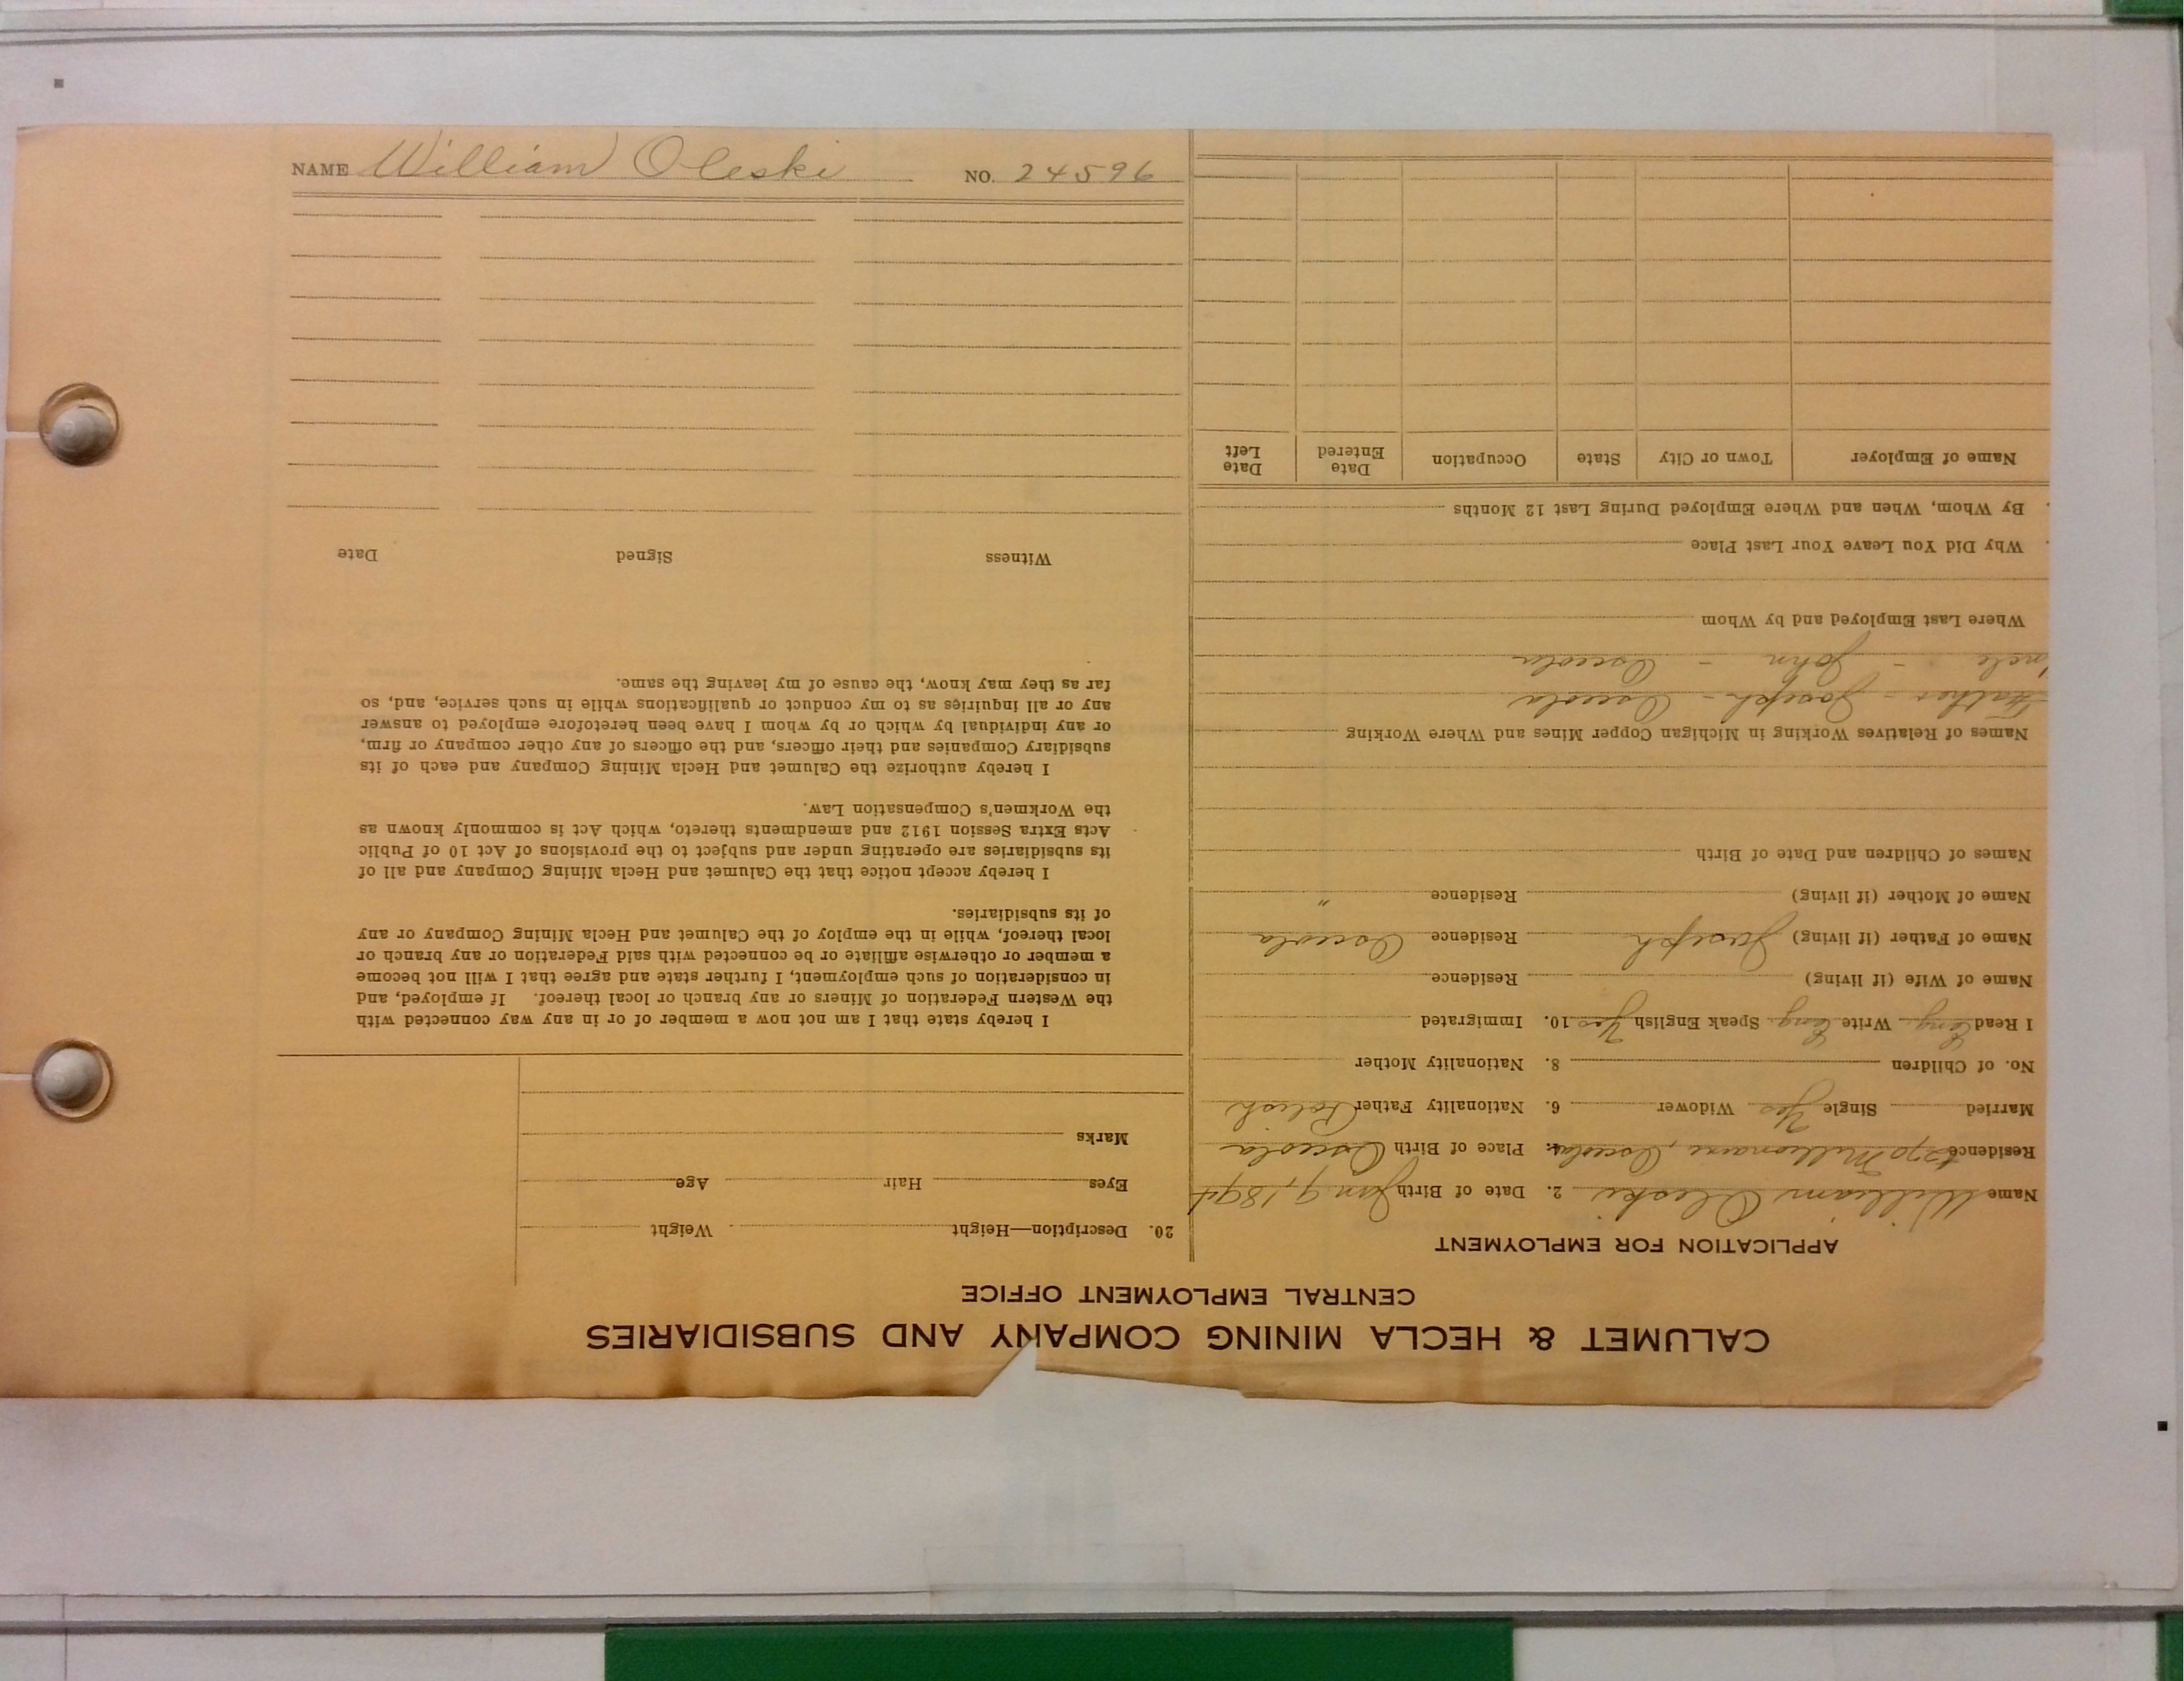 NAME William Oleski NO. 24596
CALUMET & HECLA MINING COMPANY AND SUBSIDIARIES
CENTRAL EMPLOYMENT OFFICE
APPLICATION FOR EMPLOYMENT
Name William Oleski 2. Date of Birth Jan 9, 1894
Residence Millionaire, Osceola 4. Place of Birth Osceola
Married Single Yes Widower 6. Nationality Father Polish
No. of Children 8. Nationality Mother
I Read Eng. Write Eng. Speak English Yes 10. Immigrated
Name of Wife (if living) Residence
Name of Father (if living) Joseph Residence Osceola
Name of Mother (if living) Residence "
Names of Children and Date of Birth
Names of Relatives Working in Michigan Copper Mines and Where Working
Father - Joseph - Osceola
Uncle - John - Osceola
Where Last Employed and by Whom
Why Did You Leave Your Last Place
By Whom, When and Where Employed During Last 12 Months
Name of Employer Town or City State Occupation Date Entered Date Left
20. Description—Height Weight
Eyes Hair Age
Marks
I hereby state that I am not now a member of or in any way connected with
the Western Federation of Miners or any branch or local thereof. If employed, and
in consideration of such employment, I further state and agree that I will not become
a member or otherwise affiliate or be connected with said Federation or any branch or
local thereof, while in the employ of the Calumet and Hecla Mining Company or any
of its subsidiaries.
I hereby accept notice that the Calumet and Hecla Mining Company and all of
its subsidiaries are operating under and subject to the provisions of Act 10 of Public
Acts Extra Session 1912 and amendments thereto, which Act is commonly known as
the Workmen's Compensation Law.
I hereby authorize the Calumet and Hecla Mining Company and each of its
subsidiary Companies and their officers, and the officers of any other company or firm,
or any individual by which or by whom I have been heretofore employed to answer
any or all inquiries as to my conduct or qualifications while in such service, and, so
far as they may know, the cause of my leaving the same.
Witness Signed Date